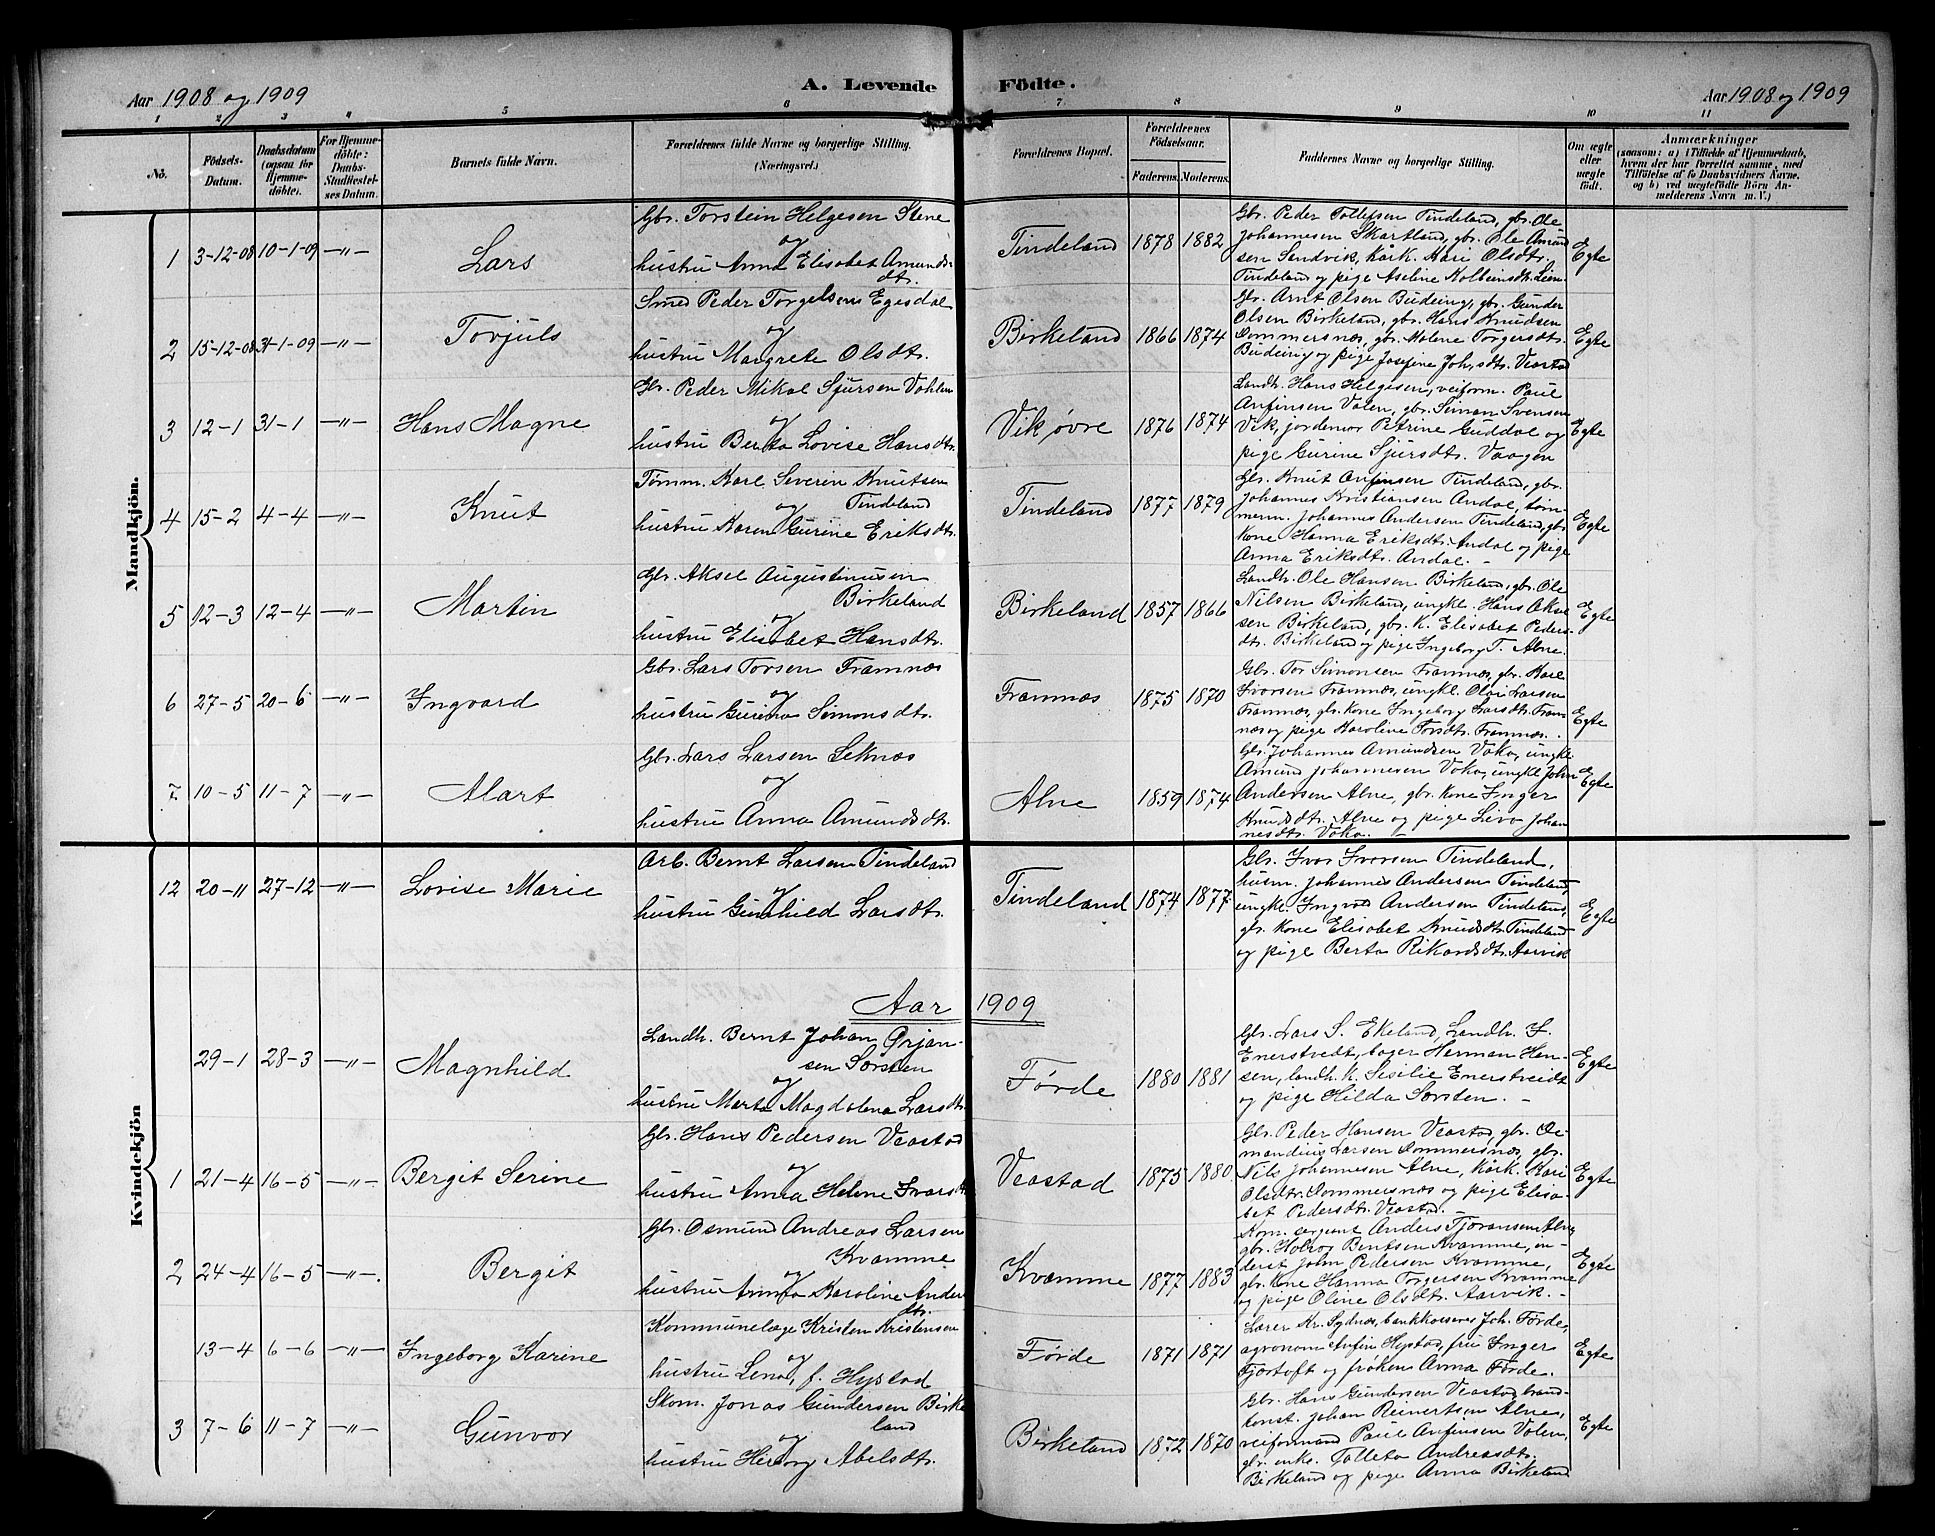 Aar 1908 og 1909
A. Levende Födte.
Aar 1908 og 1909
1 2 3 4 5 6 7 8 9 10 11
No.
Födsels-
Datum.
Daabsdatum
(ogsaa for
Hjemme-
döbte).
For Hjemme-
döbte:
Daabs-
Stadfæstel-
ses Datum.
Barnets fulde Navn.
Forældrenes fulde Navne og borgerlige Stilling.
(Næringsvei.)
Forældrenes Bopæl.
Forældrenes
Födselsaar.
Faderens. Moderens.
Faddernes Navne og borgerlige Stilling.
Om ægte
eller
uægte
födt.
Anmærkninger
(saasom: a) i Tilfælde af Hjemmedaab,
hvem der har forrettet samme, med
Tilföielse af to Daabsvidners Navne.
og b) ved uægtefödte Börn An-
melderens Navn m. V.)
Mandkjön.
1 3-12-08 10-1-09 —"— Lars
Gbr. Torstein Helgesen Stene
og
hustru Anna Elisabet Amunds-
dtr.
Tindeland 1878 1882
Gbr. Peder Tollefsen Tindeland, gbr. Ole
Johannesen Skartland, gbr. Ole Amund
sen Sandvik, kårk. Kari Olsdtr.
Tindeland og pige Aseline Kolbeinsdtr. Lien
Egte
2 15-12-08 31-1-09 —"— Torjuls
Smed Peder Torgelsen Egesdal
og
hustru Margrete Olsdtr.
Birkeland 1866 1874
Gbr. Arnt Olsen Budeing, gbr. Gunder
Olsen Birkeland, gbr. Hans Knudsen
Dommersnæs, gbr. Malene Torgersdtr.
Budeing og pige Josefine Joh,sdtr. Veastad
Egte
3 12-1 31-1 —"— Hans Magne
Gbr. Peder Mikal Sjursen Vahlen
og
hustru Berta Lovise Hansdtr.
Vik øvre 1876 1874
Landh. Hans Helgesen, veiform. Paul
Anfinsen Valen, gbr. Simon Svensen
Vik, jordemor Petrine Guddal og
pige Gurine Sjursdtr. Vaagen
Egte
4 15-2 4-4 —"— Knut
Tømm. Karl Severin Knutsen
og Tindeland
hustru Karen Gurine Eriksdtr.
Tindeland 1877 1879
Gbr. Knut Anfinsen Tindeland, gbr.
Johannes Kristiansen Andal, tøm-
merm. Johannes Andersen Tindeland, gbr
kone Hanna Eriksdtr. Andal og pige
Anna Eriksdtr. Andal. -
Egte
5 12-3 12-4 —"— Martin
Gbr. Aksel Augustinusen
Birkeland
og
hustru Elisabet Hansdtr.
Birkeland 1857 1866
Landh. Ole Hansen Birkeland, gbr. Ole
Nilsen Birkeland, ungk. Hans Aksel
sen Birkeland, gbr. k. Elisabet Peders-
dtr. Birkeland og pige Ingeborg T. Alne.
Egte
6 27-5 20-6 —"— Ingvard
Gbr. Lars Torsen Framnæs
og
hustru Gurina Simonsdtr.
Framnæs 1875 1870
Gbr. Tor Simonsen Framnæs, gbr. Karl
Ivorsen Framnæs, ungk. Olai Larsen
Framnæs, gbr. kone Ingeborg Larsdtr. Fram
næs og pige Karoline Torsdtr. Framnæs.
Egte
7 10-5 11-7 —"— Alart
Gbr. Lars Larsen Seknæs
og
hustru Anna Amundsdtr.
Alne 1859 1874
Gbr. Johannes Amundsen Vaka, ungk.
Amund Johannesen Vaka, ungk John
Andersen Alne, gbr. kone Inger
Knudsdtr. Alne og pige Siva Johan
nesdtr. Vaka. -
Egte
Kvindekjön
12 20-11 27-12 —"— Lovise Marie
Arb. Bernt Larsen Tindeland
og
hustru Gunhild Larsdtr.
Tindeland 1874 1877
Gbr. Ivar Ivarsen Tindeland,
husm. Johannes Andersen Tindeland,
ungk. Ingvald Andersen Tindeland,
gbr. kone Elisabet Knudsdtr. Tindeland
og pige Berta Rikardsdtr. Aarvik
Egte
Aar 1909
29-1 28-3 —"— Magnhild
Landh. Bernt Johan Ørjan-
sen Sørsteen
og
hustru Marta Magdalena Larsdtr.
Førde 1880 1881
Gbr. Lars S. Ekeland, Landh. I.
Enerstvedt, bager Herman Han-
sen, landh. k. Sesilie Enerstveidt
og pige Hilda Sørsteen. -
Egte
1 21-4 16-5 —"— Bergit Serine
Gbr. Hans Pedersen Veastad
og
hustru Anna Helene Ivarsdt
Veastad 1875 1880
Gbr. Peder Hansen Veastad, gbr. Or-
mandius Larsen Dommersnæs, gbr.
Nils Johannesen Alne, kårk. Kari
Olsdtr. Dommersnæs og pige Elisa-
bet Pedersdtr. Veastad.
Egte
2 24-4 16-5 —"—. Bergit
Gbr. Osmund Andreas Larsen
Kvamme
og
hustru Anna Karoline Anders
dtr.
Kvamme 1877 1883
Kom. sergent Anders Tjoransen Alne,
gbr. Halvor Bentsen Kvamme, in-
derst John Pedersen Kvamme,
gbr. kone Hanna Torgersen Kvamme
og pige Oline Olsdtr. Aarvik. -
Egte
13-4 6-6 —"— Ingeborg Karine
Kommunelæge Kristen Kristensen
og
hustru Lena, f. Hystad
Førde 1871 1871
Lærer Kr. Sydnæs, bankkasserer Joh. Førde,
agronom Anfin Hystad, fru Inger
Fjørtoft og frøken Anna Førde.
Egte
3 7-6 11-7 —"— Gunvor
Skom. Jonas Gundersen Birke
land
og
hustru Herborg Abelsdtr.
Birkeland 1872 1870
Gbr. Hans Gundersen Veastad, brand-
konst. Johan Reinertsen Alne,
veiformand Paul Anfinsen Valen,
gbr. enke. Tolleta Andreasdtr.
Birkeland og pige Anna Birkeland
Egte